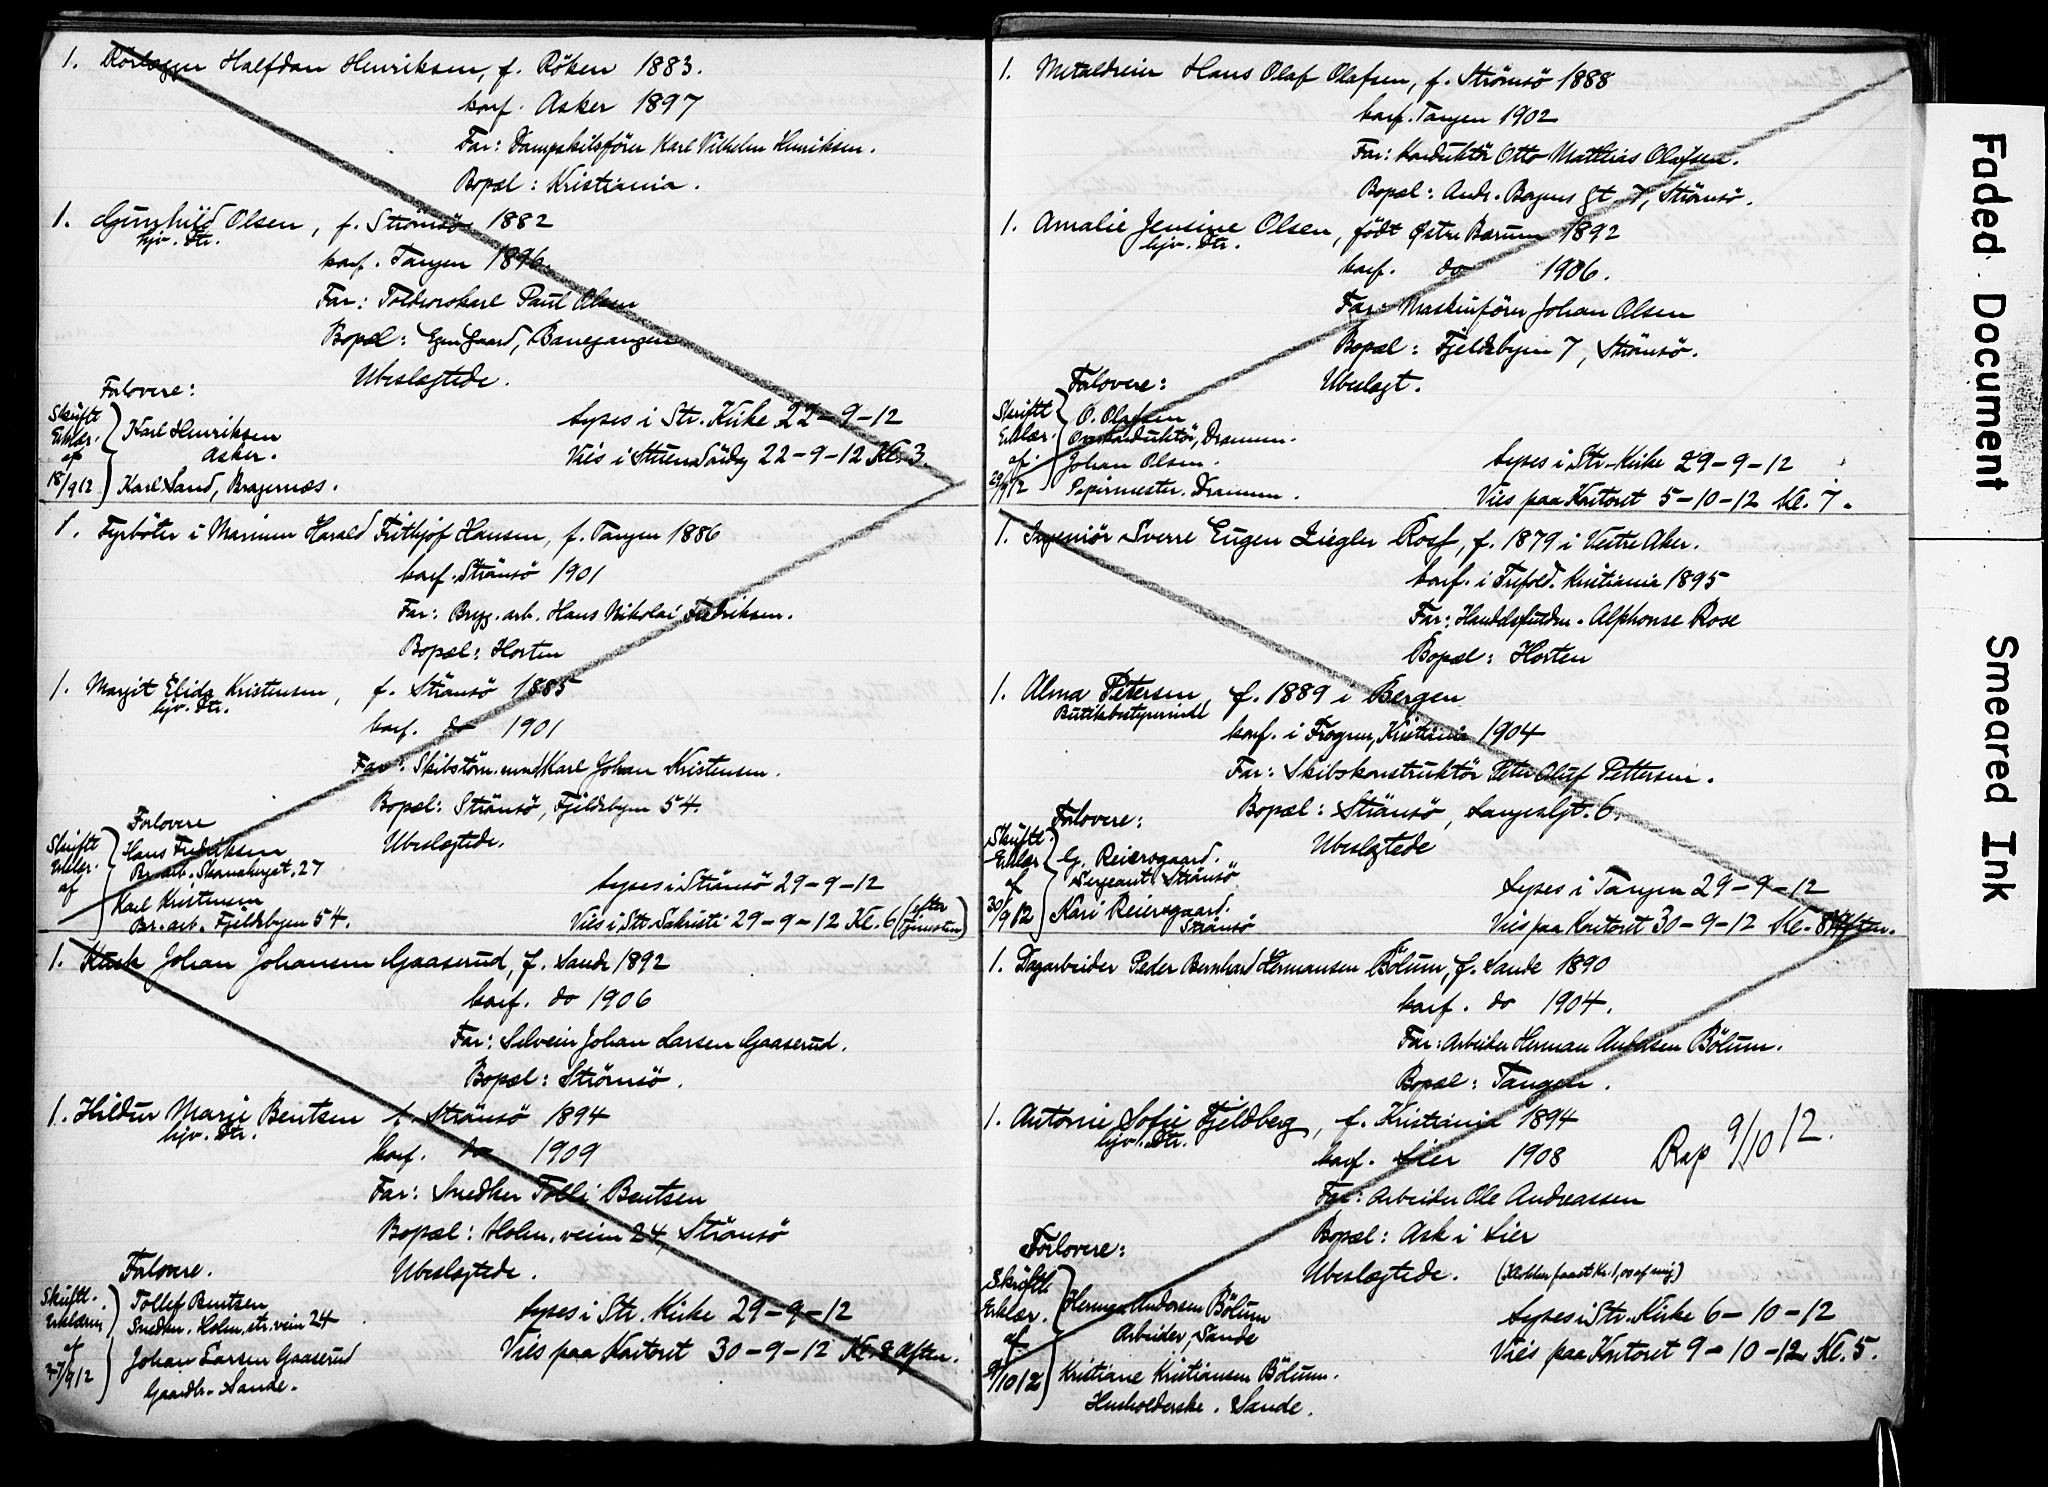 1. Rörlægger Halfdan Henriksen, f. Röken 1883.
konf. Asker 1897
Far: Dampskibsfører Karl Vilhelm Henriksen.
Bopæl: Kristiania.
1. Gunhild Olsen, f. Strömsö 1882
hjv. Dtr.
konf. Tangen 1896.
Far: Toldvorskarl Paul Olsen
Bopæl: Egen Gaard, Banegangen
Ubeslægtede.
Forlovere:
Skriftl. Erklær. af 18/9 12
Karl Henriksen
Asker.
Karl Sand, Bragernes.
Lyses i Str. Kirke 22-9-12
Vies i Søndag 22-9-12 Kl. 3.
1. Fyrböter i Marinen Harald Frithjof Hansen, f. Tangen 1886
konf. Strömsö 1901
Far: Bryg. arb. Hans Nikolai Fredriksen.
Bopæl: Horten
1. Margit Elida Kristensen, f. Strömsö 1885
hjv. Dtr.
konf. do 1901
Far: Skibstöm.mand Karl Johan Kristensen.
Bopæl: Strömsö, Fjeldsbyen 54.
Ubeslægtede.
Forlovere
Skriftl. Erklær. af
Hans Fredriksen
Br. arb. 27
Karl Kristensen
Br. arb. Fjeldsbyen 54.
Lyses i Strömsö 29-9-12
Vies i Str. Sakristi 29-9-12 Kl. 6 (efter tjenesten)
1. Kusk Johan Johansen Gaaserud, f. Sande 1892
konf. do 1906
Far: Selveier Johan Larsen Gaaserud.
Bopæl: Strömsö.
1. Hildur Marie Bentsen f. Strömsö 1894
hjv. Dtr.
konf. do 1909
Far: Snedker Tollef Bentsen
Bopæl: Holm. veien 24, Strömsö
Ubeslægtede.
Forlovere.
Skriftl. Erklæring af 27/9 12
Tollef Bentsen
Snedker. Holm. str. vein 24
Johan Larsen Gaaserud
Gaardbr. Sande.
Lyses i Str. Kirke 29-9-12
Vies paa Kontoret 30-9-12 Kl. 8 Aften.
1. Metaldreier Hans Olaf Olafsen, f. Strömsö 1888
konf. Tangen 1902
Far: Konduktör Otto Mathias Olafsen.
Bopæl: Andr. gt 7, Strömsö.
1. Amalie Jensine Olsen, født Østre Bærum 1892
hjv. Dtr.
konf. do 1906.
Far: Maskinfører Johan Olsen
Bopæl: Fjeldsbyen 7, Strömsö.
Ubeslægt.
Forlovere:
Skriftl. Erklær. af 29/9 12
O. Olafsen
Overkonduktör, Drammen.
Johan Olsen.
Papirmester. Drammen.
Lyses i Str. Kirke 29-9-12
Vies paa Kontoret 5-10-12 Kl. 7.
1. Ingeniör Sverre Eugen Ziegler Rosf, f. 1879 i Vestre Aker.
konf. i Trefold. Kristiania 1895
Far: Handelsfuldm. Alphonse Rose
Bopæl: Horten
1. Alma Petersen, f. 1889 i Bergen
Butiksbestyrerinde
konf. i Frogner, Kristiania 1904
Far: Skibskonstruktör Peter Oluf Pettersen.
Bopæl: Strömsö, Langesgt. 6.
Ubeslægtede
Forlovere:
Skriftl. Erklær af 30/9 12
G. Reiersgaard.
Sergeant. Strömsö
Kari Reiersgaard.
Strömsö
Lyses i Tangen 29-9-12
Vies paa Kontoret 30-9-12 Kl. 8 Aften.
1. Dagarbeider Peder Bernhard Hermansen Bölum, f. Sande 1890
konf. do 1904.
Far: Arbeider Herman Andersen Bölum.
Bopæl: Tangen.
1. Antonie Sofie Fjeldberg, f. Kristiania 1894
hjv. Dtr.
konf. Lier 1908
Rap 9/10 12.
Far: Arbeider Ole Andreassen
Bopæl: Ask i Lier
Ubeslægtede. (Klokker faaet Kr. 1,00 af mig)
Forlovere:
Skriftl. Erklær. af 9/10 12
Herman Andersen Bölum
Arbeider, Sande
Kristiane Kristiansen Bölum.
Husholderske. Sande.
Lyses i Str. Kirke 6-10-12
Vies paa Kontoret 9-10-12 Kl. 5.
Faded Document
Smeared Ink